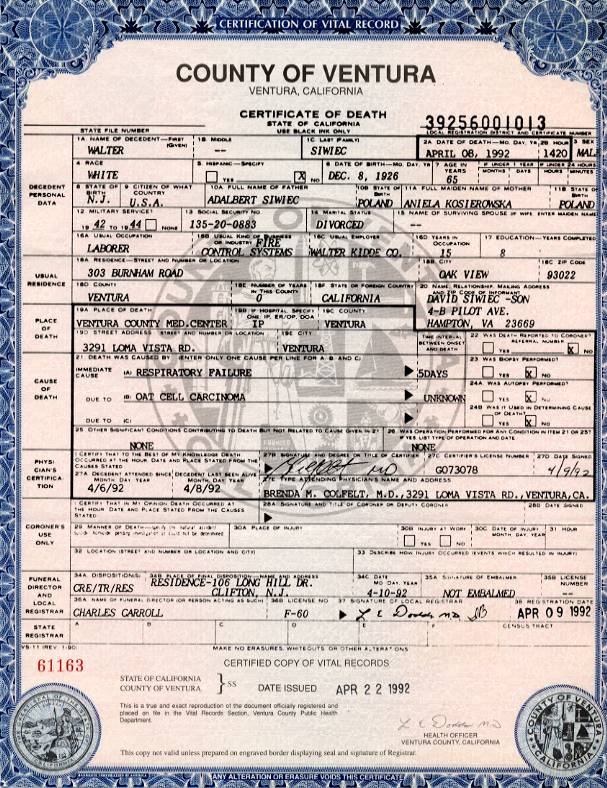 CERTIFICATION OF VITAL RECORD
COUNTY OF VENTURA
VENTURA, CALIFORNIA
CERTIFICATE OF DEATH
STATE OF CALIFORNIA
USE BLACK INK ONLY
39256001013
STATE FILE NUMBER
LOCAL REGISTRATION DISTRICT AND CERTIFICATE NUMBER
1A NAME OF DECEDENT—FIRST (GIVEN) 1B MIDDLE 1C LAST (FAMILY) 2A DATE OF DEATH—MO. DAY, YR 2B HOUR 3 SEX
WALTER -- SIWIEC APRIL 08, 1992 1420 MAL
4 RACE 5 HISPANIC—SPECIFY 6 DATE OF BIRTH—MO. DAY, YR 7 AGE IN YEARS MONTHS DAYS HOURS MINUTES
WHITE YES X NO DEC. 8, 1926 65
DECEDENT PERSONAL DATA
8 STATE OF BIRTH 9 CITIZEN OF WHAT COUNTRY 10A FULL NAME OF FATHER 10B STATE OF BIRTH 11A FULL MAIDEN NAME OF MOTHER 11B STATE OF BIRTH
N.J. U.S.A. ADALBERT SIWIEC POLAND ANIELA KOSIEROWSKA POLAND
12 MILITARY SERVICE? 13 SOCIAL SECURITY NO. 14 MARITAL STATUS 15 NAME OF SURVIVING SPOUSE (IF WIFE, ENTER MAIDEN NAME)
19 42 TO 19 44 NONE 135-20-0883 DIVORCED --
16A USUAL OCCUPATION 16B USUAL KIND OF BUSINESS OR INDUSTRY 16C USUAL EMPLOYER 16D YEARS IN OCCUPATION 17 EDUCATION—YEARS COMPLETED
LABORER FIRE CONTROL SYSTEMS WALTER KIDDE CO. 15 8
USUAL RESIDENCE
18A RESIDENCE—STREET AND NUMBER OR LOCATION 18B CITY 18C ZIP CODE
303 BURNHAM ROAD OAK VIEW 93022
18D COUNTY 18E NUMBER OF YEARS IN THIS COUNTY 18F STATE OR FOREIGN COUNTRY 20 NAME, RELATIONSHIP, MAILING ADDRESS AND ZIP CODE OF INFORMANT
VENTURA 0 CALIFORNIA DAVID SIWIEC -SON
4-B PILOT AVE.
HAMPTON, VA 23669
PLACE OF DEATH
19A PLACE OF DEATH 19B IF HOSPITAL, SPECIFY ONE: IP, ER/OP, DOA 19C COUNTY
VENTURA COUNTY MED.CENTER IP VENTURA
19D STREET ADDRESS—STREET AND NUMBER OR LOCATION 19E CITY
3291 LOMA VISTA RD. VENTURA
TIME INTERVAL BETWEEN ONSET AND DEATH
22 WAS DEATH REPORTED TO CORONER? REFERRAL NUMBER
YES X NO
CAUSE OF DEATH
21 DEATH WAS CAUSED BY (ENTER ONLY ONE CAUSE PER LINE FOR A, B AND C)
IMMEDIATE CAUSE (A) RESPIRATORY FAILURE 5DAYS
23 WAS BIOPSY PERFORMED?
YES X NO
DUE TO (B) OAT CELL CARCINOMA UNKNOWN
24A WAS AUTOPSY PERFORMED?
YES X NO
DUE TO (C)
24B WAS IT USED IN DETERMINING CAUSE OF DEATH?
YES X NO
25 OTHER SIGNIFICANT CONDITIONS CONTRIBUTING TO DEATH BUT NOT RELATED TO CAUSE GIVEN IN 21
NONE
26 WAS OPERATION PERFORMED FOR ANY CONDITION IN ITEM 21 OR 25? IF YES, LIST TYPE OF OPERATION AND DATE
NONE
PHYSICIAN'S CERTIFICATION
I CERTIFY THAT TO THE BEST OF MY KNOWLEDGE DEATH OCCURRED AT THE HOUR DATE AND PLACE STATED FROM THE CAUSES STATED
27B SIGNATURE AND DEGREE OR TITLE OF CERTIFIER 27C CERTIFIER'S LICENSE NUMBER 27D DATE SIGNED
G073078 4/9/92
27A DECEDENT ATTENDED SINCE MONTH, DAY, YEAR DECEDENT LAST SEEN ALIVE MONTH, DAY, YEAR
4/6/92 4/8/92
27E TYPE ATTENDING PHYSICIAN'S NAME AND ADDRESS
BRENDA M. COLFELT, M.D.,3291 LOMA VISTA RD.,VENTURA,CA.
CORONER'S USE ONLY
I CERTIFY THAT IN MY OPINION DEATH OCCURRED AT THE HOUR DATE AND PLACE STATED FROM THE CAUSES STATED
28A SIGNATURE AND TITLE OF CORONER OR DEPUTY CORONER 28B DATE SIGNED
29 MANNER OF DEATH 30A PLACE OF INJURY 30B INJURY AT WORK? YES NO 30C DATE OF INJURY MONTH, DAY, YEAR 31 HOUR
32 LOCATION (STREET AND NUMBER OR LOCATION AND CITY) 33 DESCRIBE HOW INJURY OCCURRED (EVENTS WHICH RESULTED IN INJURY)
FUNERAL DIRECTOR AND LOCAL REGISTRAR
34A DISPOSITION(S) 34B PLACE OF FINAL DISPOSITION—NAME AND ADDRESS 34C DATE MO DAY, YEAR 35A SIGNATURE OF EMBALMER 35B LICENSE NUMBER
CRE/TR/RES RESIDENCE-106 LONG HILL DR. CLIFTON, N.J. 4-10-92 NOT EMBALMED --
36A NAME OF FUNERAL DIRECTOR (OR PERSON ACTING AS SUCH) 36B LICENSE NO 37 SIGNATURE OF LOCAL REGISTRAR 38 REGISTRATION DATE
CHARLES CARROLL F-60 APR 09 1992
STATE REGISTRAR
A B C D E F CENSUS TRACT
VS-11 (REV. 1-90) MAKE NO ERASURES, WHITEOUTS OR OTHER ALTERATIONS
61163
CERTIFIED COPY OF VITAL RECORDS
STATE OF CALIFORNIA
COUNTY OF VENTURA } SS DATE ISSUED APR 22 1992
This is a true and exact reproduction of the document officially registered and placed on file in the Vital Records Section, Ventura County Public Health Department.
HEALTH OFFICER
VENTURA COUNTY, CALIFORNIA
This copy not valid unless prepared on engraved border displaying seal and signature of Registrar.
COUNTY OF VENTURA
CALIFORNIA
ANY ALTERATION OR ERASURE VOIDS THIS CERTIFICATE